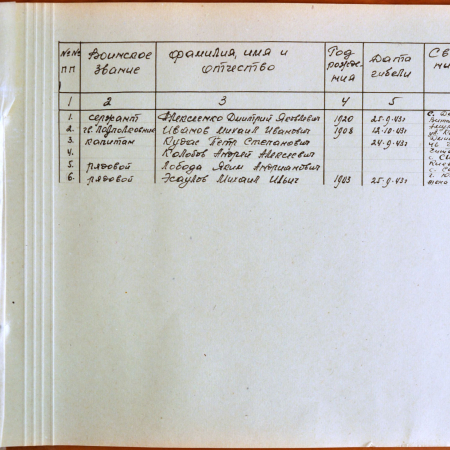 №№ пп Воинское звание Фамилия, имя и отчество Год рождения Дата гибели Св
1 2 3 4 5
1. сержант Алексеенко Дмитрий Яковлевич 1920 25-9-43г
2. гв. Подполковник Иванов Михаил Иванович 1908 12-10-43г
3. капитан Кудас Петр Степанович 24-9-43г
4. Колобов Андрей Алексеевич
5. рядовой Лобода Яким Андрианович
6. рядовой Есаулов Михаил Ильич 1903 25-9-43г